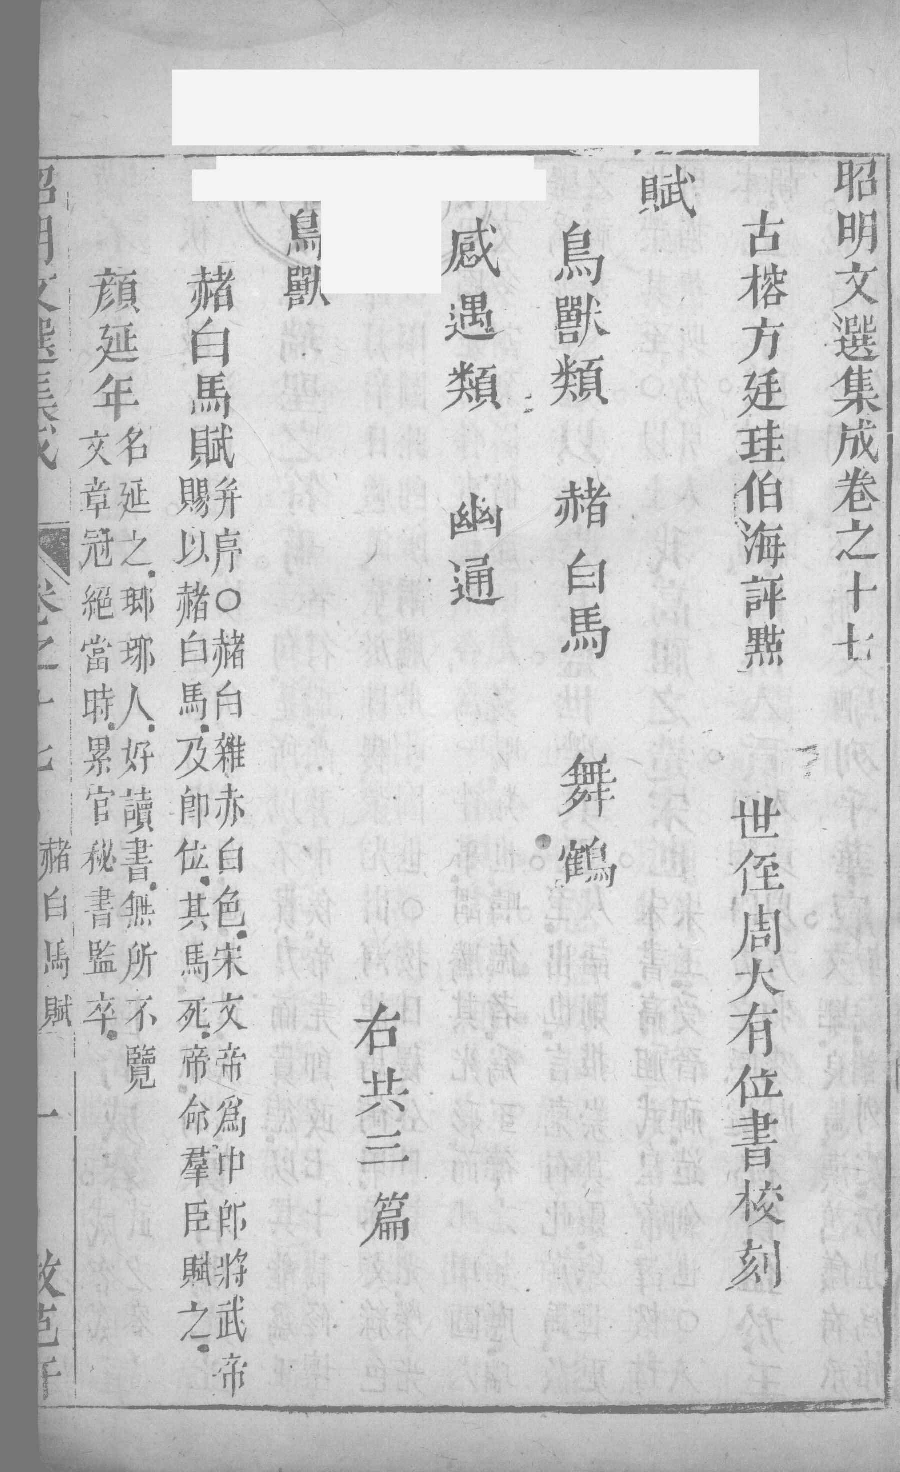 昭明文選集成卷之十七
古榕方廷珪伯海評點　世侄周大有位書校刻
賦
鳥獸類　赭白馬　舞鶴
感遇類　幽通
右共三篇
鳥獸
赭白馬賦
幷序○赭白雜赤白色宋文帝爲中郎將武帝
賜以赭白馬及卽位其馬死帝命羣臣賦之
顔延年
名延之瑯琊人好讀書無所不覽
文章冠絕當時累官秘書監卒
昭明文選集成　卷之十七　赭白馬賦　一